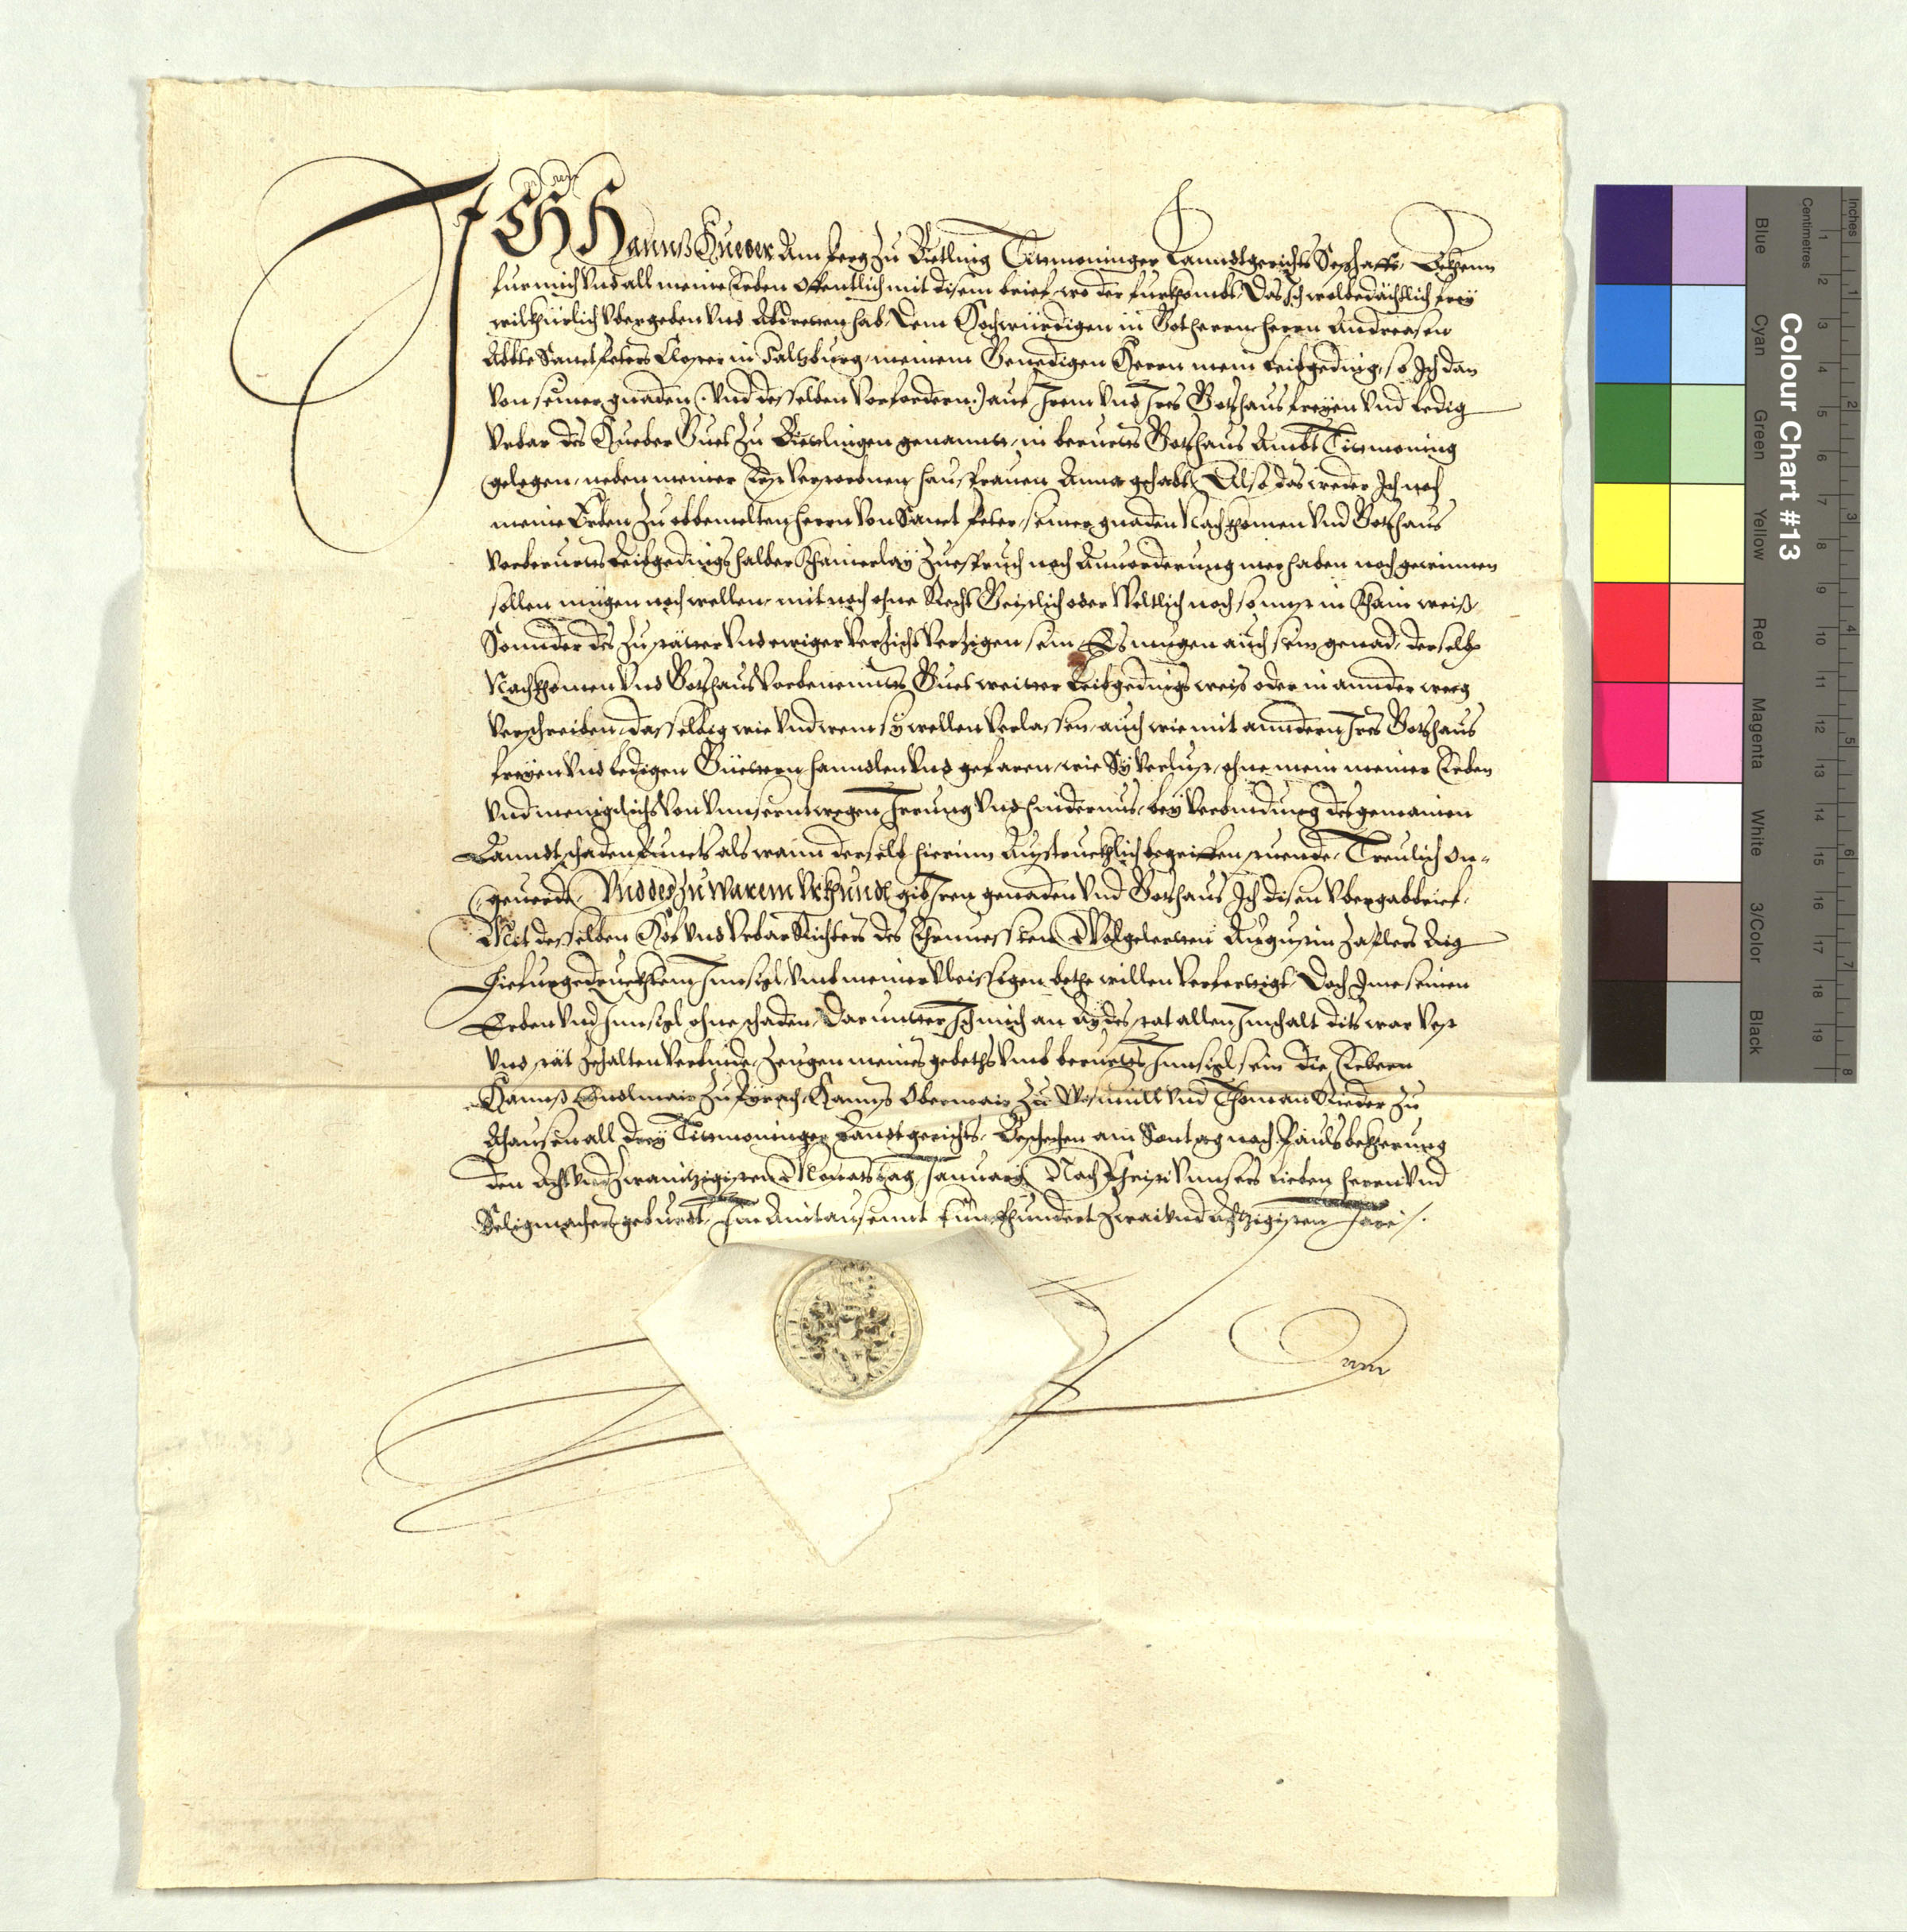 Ich Hannß Hueber Am perg zu Dietling Titmoninger Lanndtgerichts Seßhafft, Bekhenn
fur mich Vnd all meine Erben offentlich mit disem brief wo der furkhombt, Das ich wolbedächtlich frey
wilkhürlich vbergeben Vnd Abdretten hab, Dem Hochwürdigen in Got herrn, herrn Andreasen
Abbte Sanct peters Closter in Saltzburg, meinem Genedigen Herrn mein leibgeding, so Ich dan
Von seiner gnaden (: Vnd desselben Vorfordern :) auf Irem Vnd Ires Gotzhaus freyen Vnd ledig
Vrbar des Hueber Guet zu Dietlingen genannt, in beruerts Gotzhaus Ambt Titmoning
gelegen, neben meiner Erst Verstorbnen hausfrauen Anna gehabt, Also das weder Ich noch
meine Erben zu obbemelten herrn Von Sanct Peter, seiner gnaden Nachkhomen Vnd Gotzhaus
Vorberuerts leibgedings halber Khainerlay zuespruch noch Annorderung mer haben noch gewinnen
sollen mügen noch wellen, mit noch ohne Recht Geistlich oder Weltlich noch sonnst in Khain weiß,
Sonnder des zu stätter Vnd ewiger Verzicht Verzigen sein, Es mugen auch sein genad, derselb
Nachkhomen Vnd Gotzhaus Vorbenennts Guet weitter leibgedings weis oder in annder weeg
Verschreiben, dasselbig wie Vnd wem sy wellen Verlassen, auch wie mit anndern Ires Gotzhaus
freyen Vnd ledigen Güettern hanndlen Vnd gefaren, wie Sy Verlust, ohne mein meiner Erben
Vnd menigclichs Von Vnnsern wegen Irrung Vnd hindernus, bey Verbindung des gemainen
Lanndtschadenpuncts als wann derselb hierinn Austruckhlich begriffen stuende, Treulich on-
geuerde, Vnd des zu warem Vrkhundt gib Iren genaden Vnd Gotzhaus Ich disen Vbergabbrief,
Mit desselben Hof Vnd Vrbar Richters des Ehrnuessten Wolgelerten Augustin
Hiefurgedruckhtem Innsigl, Vmb meiner Vleissigen bethe willen Verfertigt, Doch Ime seinen
Erben Vnd Innsigl ohne schaden, Darunnter Ich mich an Aydes stat allen Innhalt dits war Vest
Vnd stät zehalten Verbinde, Zeugen meines gebeths Vmb beruerts Innsigl sein die Erbern
Hannß zu Hanns Obermair zu Vnd Thoman Rieder zu
all drey Titmoninger Landtgerichts, Beschehen am Sontag nach Pauls bekherung
den Acht Vnd Zwaintzigisten Monats tag Januarij Nach Christi Vnnsers lieben herrn Vnd
Seligmachers geburdt, Im Aintausennt Fünfhundert Zwai Vnd Achtzigisten Jare /.